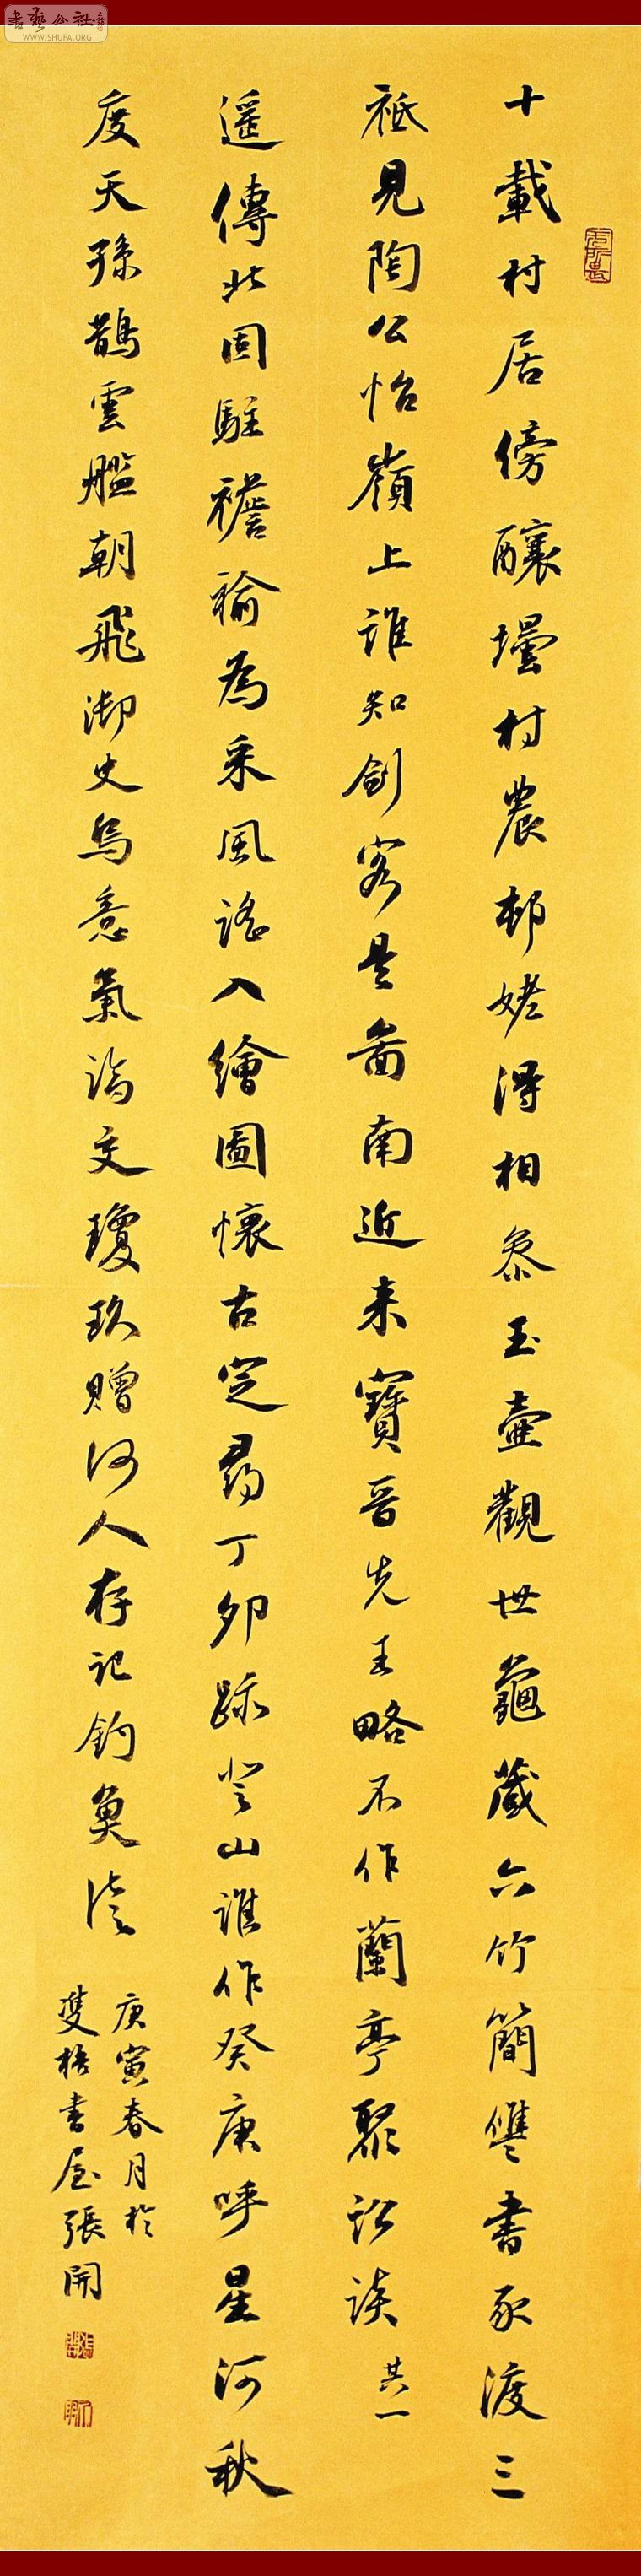 十載村居傍釀壜村農邨姥得相叅玉壷觀世龜藏六竹簡讐書豕渡三
祗見陶公怡嶺上誰知劍客是圖南近来寶晉先王略不作蘭亭聚訟談其一
遥傳北固駐襜褕為采風謠入繪圖懷古定尋丁卯跡登山誰作癸庚呼星河秋
度天孫鵲雲艦朝飛御史烏意氣論交瓊玖贈何人存記釣奠
庚寅春月於
雙梧書屋張開
書藝公社
WWW.SHUFA.ORG